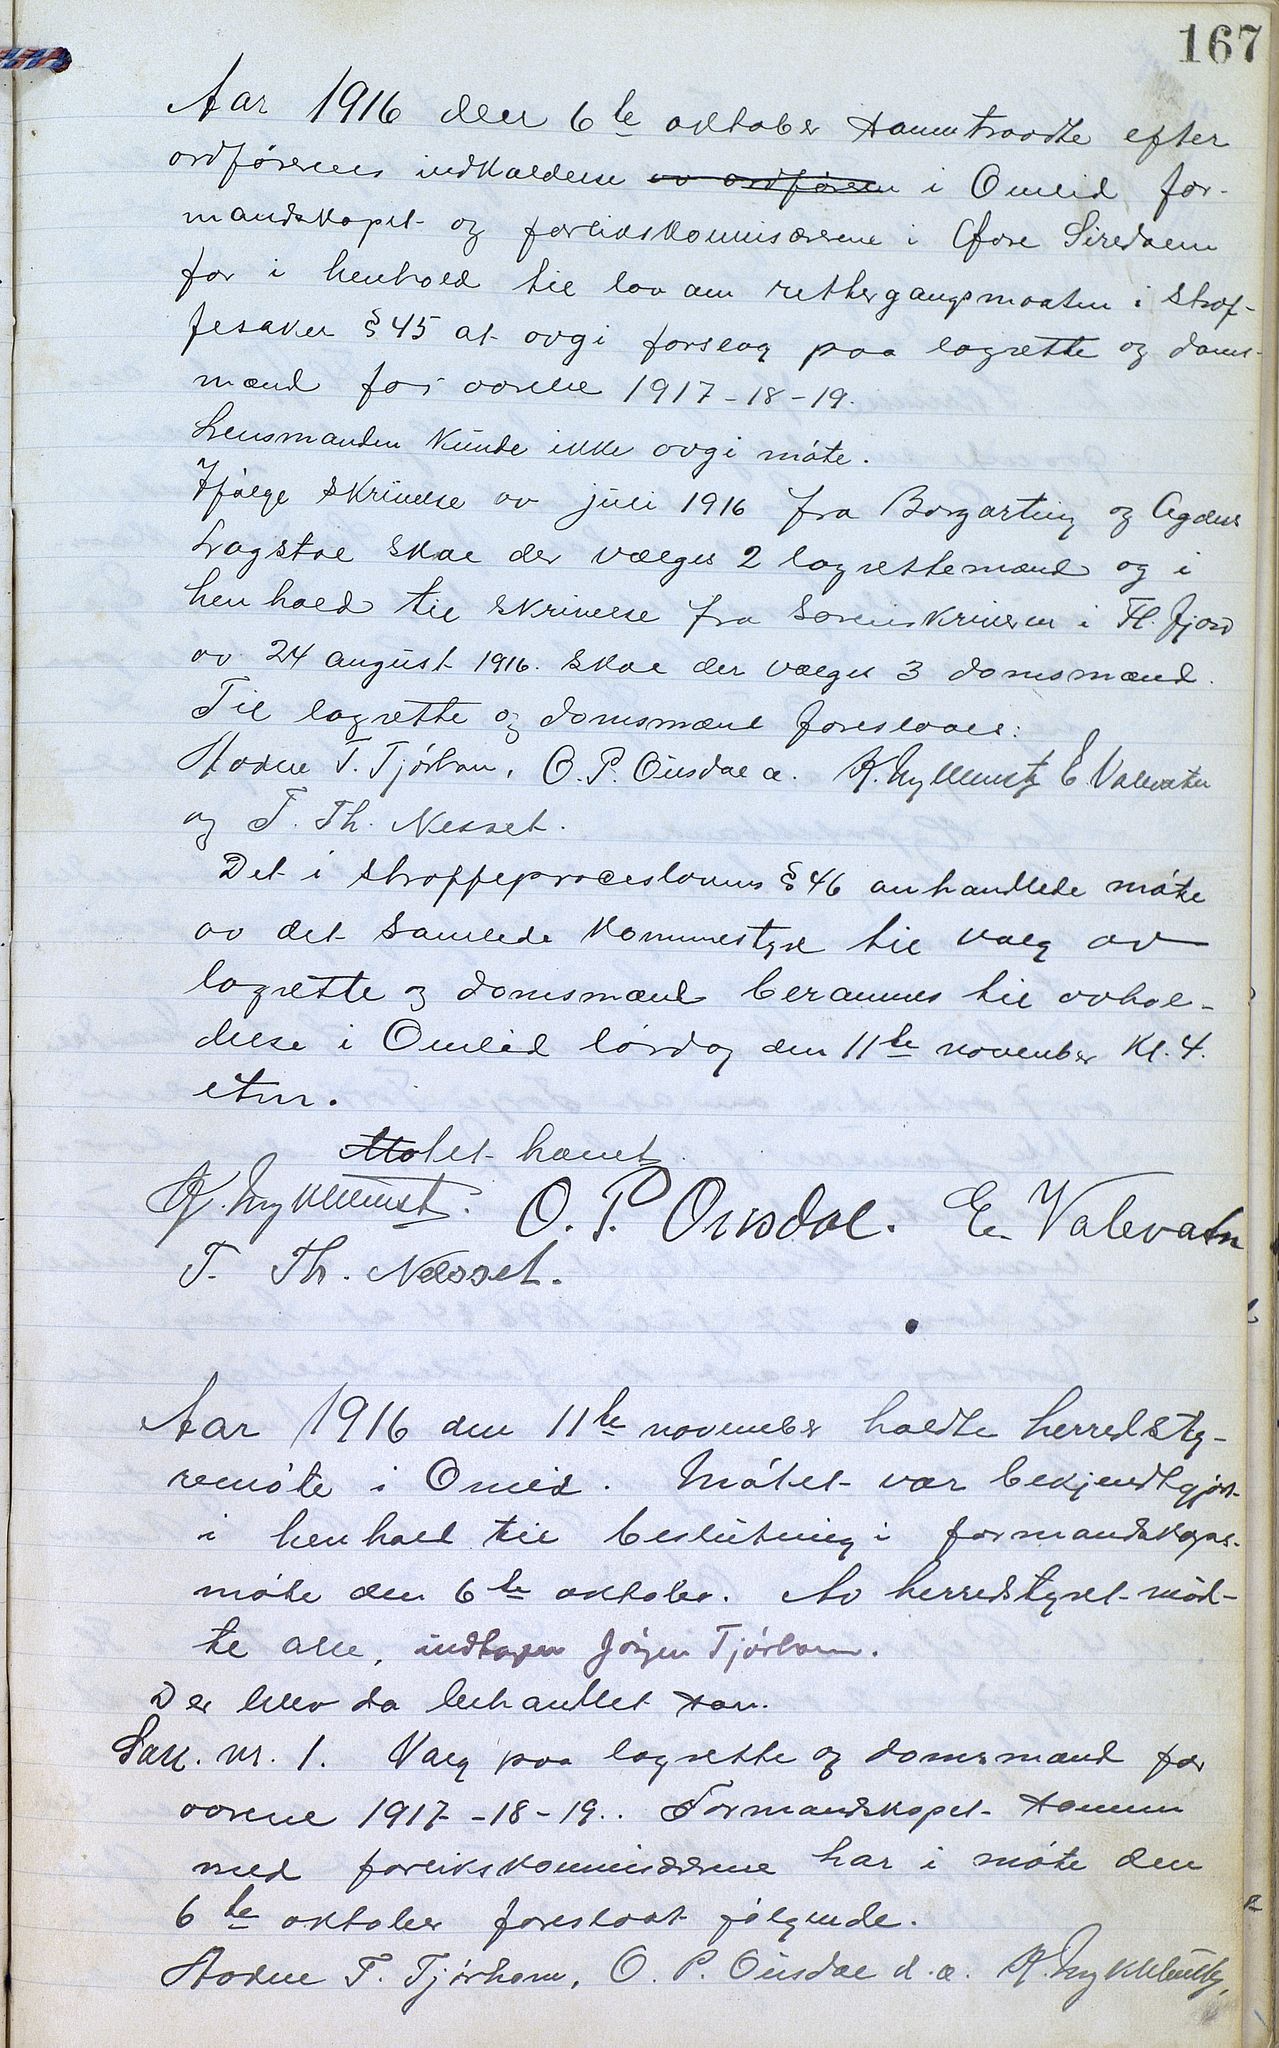 167
Aar 1916 den 6te oktober samtraadte efter
ordførerens indkaldelse av ordføreren i Omlid for-
mandskapet og forlikskommisærerne i Øvre Siredalen
for i henhold til lov om rettergangsmaaten i straf-
fesaker § 45 at avgi forslag paa lagrette og doms-
mænd for aarene 1917-18-19.
Lensmanden kunde ikke avgi møte.
Ifølge skrivelse av juli 1916 fra Borgarting og Agders
Lagstol skal der vælges 2 lagrettemænd og i
henhold til skrivelse fra Sorenskriveren i Fl. fjord
av 24 august 1916. skal der vælges 3 domsmænd.
Til lagrette og domsmænd foreslaaes:
T. Tjørhom, O. P. Ousdal a. E. Valevatn
og T. Th. Nesset.
Det i straffeproceslovens § 46 omhandlede møte
av det samlede kommestyre til valg av
lagrette og domsmænd berammes til avhol-
delse i Omlid lørdag den 11te november Kl. 4.
etm.
Møtet hævet.
O. P. Ousdal. E. Valevatn
T. Th. Nesset.
Aar 1916 den 11te november holdtes herredsty-
remøte i Omlid. Møtet var bekjendtgjort
i henhold til beslutning i formandskaps-
møte den 6te oktober. Av herredstyret mød-
te alle, indtagen Jørgen Tjørhom.
Der blev da behandlet saa.
Sak. nr. 1. Valg paa lagrette og domsmænd for
aarene 1917-18-19.. Formandskapet sammen
med forlikskommisærerne har i møte den
6te oktober foreslaat følgende.
T. Tjørhom, O. P. Ousdal d. a.